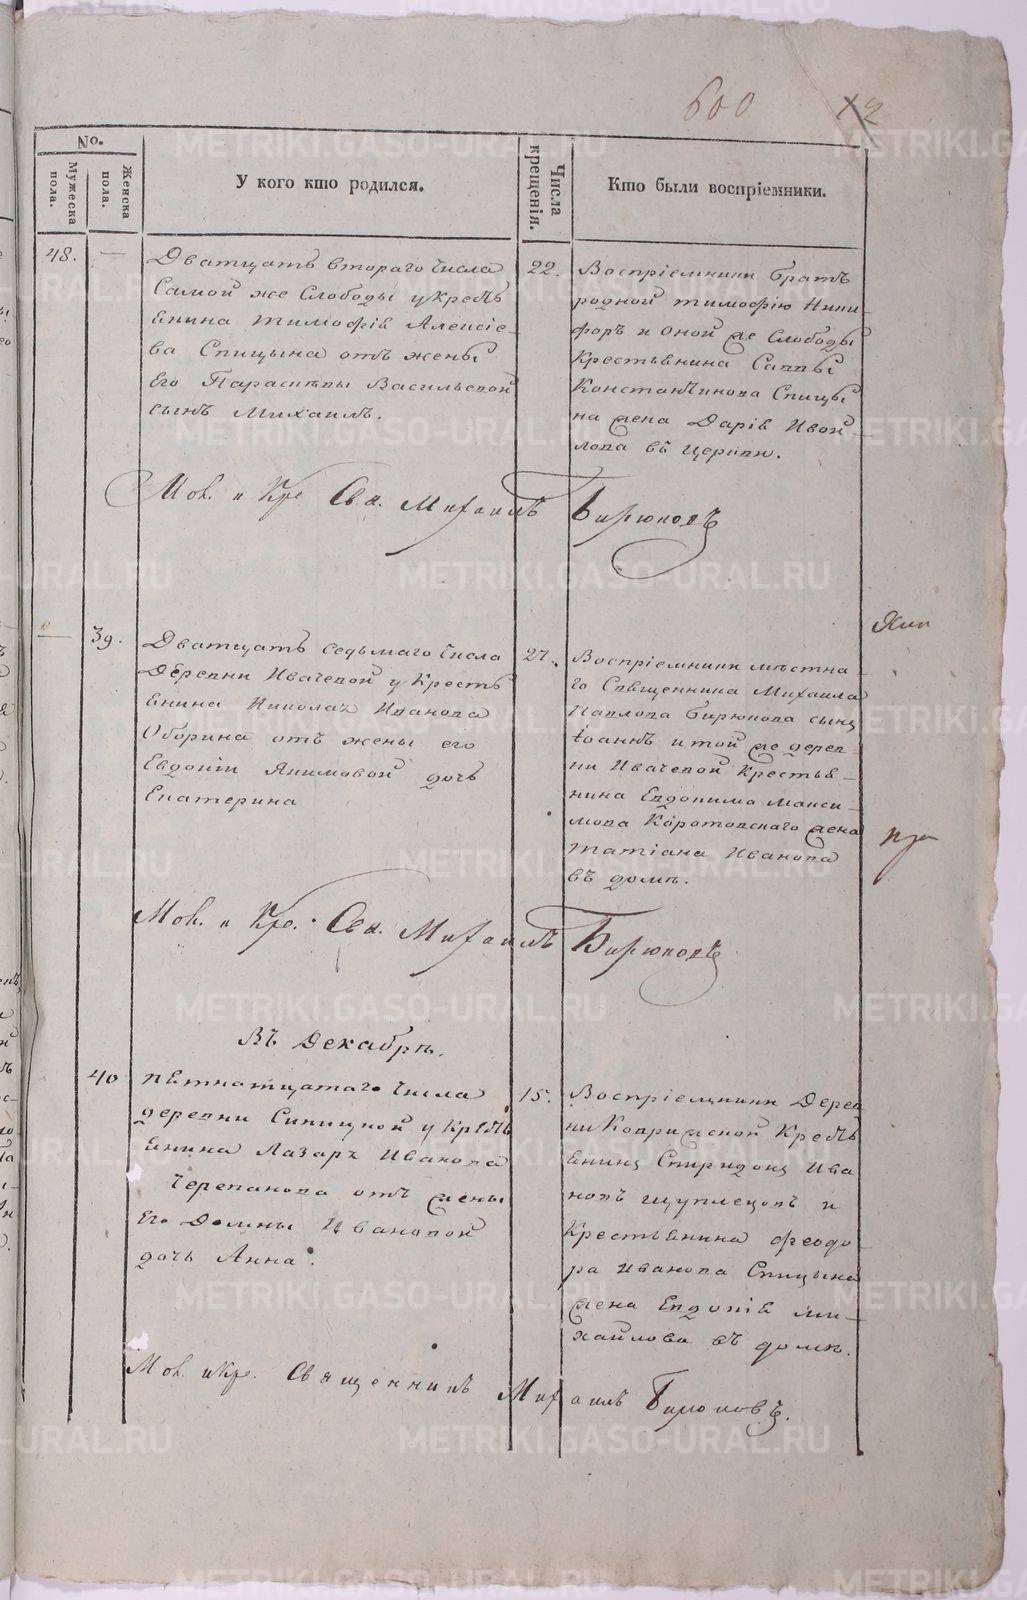 600 12
No.
Мужеска пола.
Женска пола.
У кого кто родился.
Числа крещенія.
Кто были воспріемники.
48. —
Дватцать втораго числа
Самой же Слободы у крестъ
янина Тимофѣя Алексѣе-
ва Спицына отъ жены
Его Парасковьи Васильевой
сынъ Михаилъ.
22.
Воспріемники братъ
родной Тимофѣю Ники-
форъ и оной же Слободы
Крестьянина Саввы
Константинова Спицы
на жена Дарія Ивой
лова въ церкви.
Мол. и Кре. Свя. Михаилъ Бирюковъ
— 39.
Дватцать седьмаго числа
Деревни Ивачевой у Кресть
янина Николая Иванова
Оборина отъ жены его
Евдокіи Якимовой дочь
Екатерина
27.
Воспріемники мѣстна
го Священника Михаила
Павлова Бирюкова сынъ
Іоаннъ и той же дерев
ни Ивачевой Крестья-
нина Евдокима Макси-
мова Коротовскаго жена
Татіана Иванова
въ домѣ.
Мол. и Кре. Свя. Михаилъ Бирюковъ
Въ Декабрѣ.
40
пятнатцатаго числа
деревни Сипицкой у Крестъ
янина Лазаря Иванова
Черепанова отъ жены
Его Домны Ивановой
дочь Анна.
15.
Воспріемники Дерев
ни Коврижской Кресть
янинъ Спиридонъ Ива
новъ Щуплецовъ и
Крестьянина Феодо
ра Иванова Спицына
жена Евдокія Ми-
хайлова въ домѣ.
Мол. и Кре. Священникъ Михаилъ Бирюковъ.
METRIKI.GASO-URAL.RU